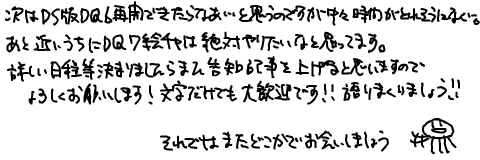 次はDS版DQ6再開できたらなあいと思うのですが中々時間がとれそうになくい。
あと近いうちにDQ7絵チャは絶対やりたいなと思ってます。
詳しい日程等決まりましたらまた告知記事を上げると思いますので
よろしくお願いします!文字だけでも大歓迎です!!語りまくりましょう!!
それではまたどこかでお会いしましょう